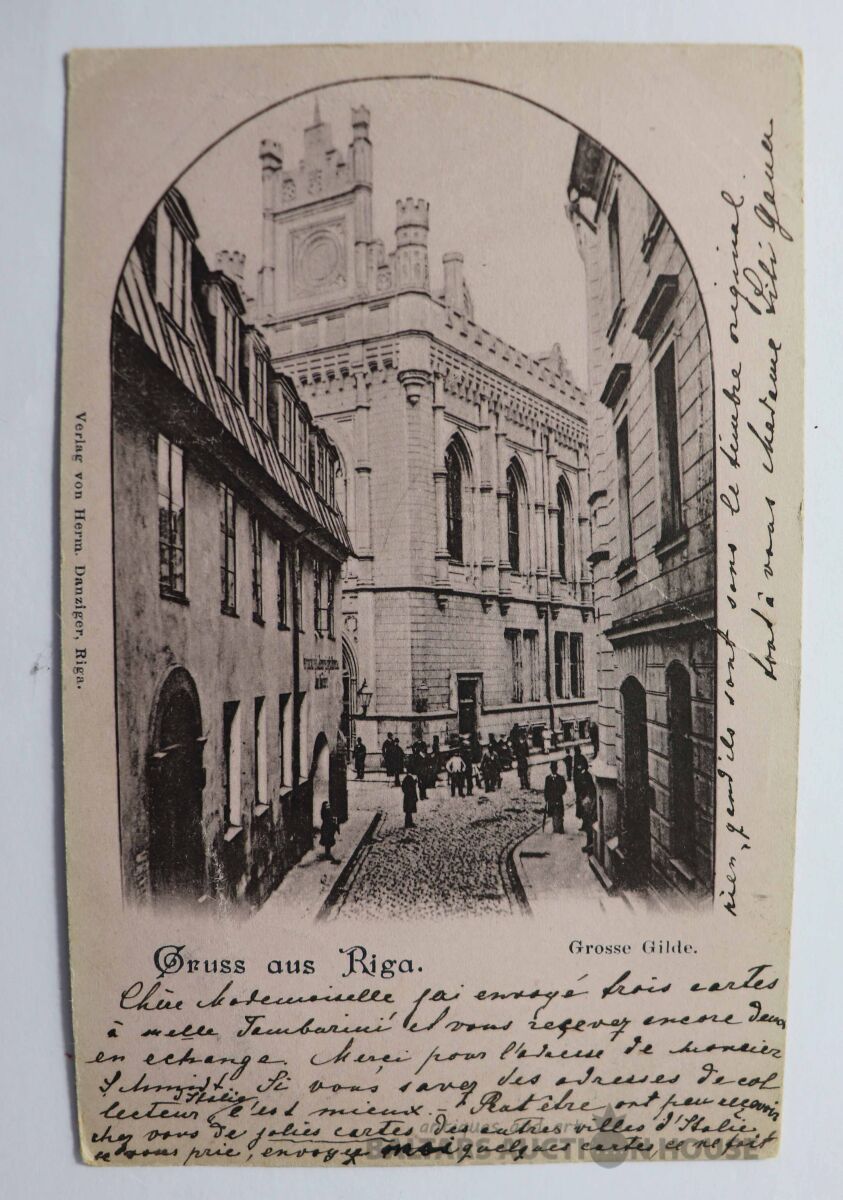 Verlag von Herm. Danziger, Riga.
Gruss aus Riga.
Grosse Gilde.
Chère Mademoiselle j'ai envoyé trois cartes
à melle Tamburini et vous reçevez encore deux
en echange. Merci pour l'adresse de monsier
Schmidt. Si vous savez des adresses de col
lecteur d'Italie c'est mieux. – Peut être ont peu reçevoir
chez vous de jolies cartes des autres villes d'Italie
je vous prie, envoyez moi quelques cartes, ce ne fait
rien, quand ils sont sans le timbre original.
tout à vous Madame Lili
antiques & fine art
BALTARS AUCTION HOUSE